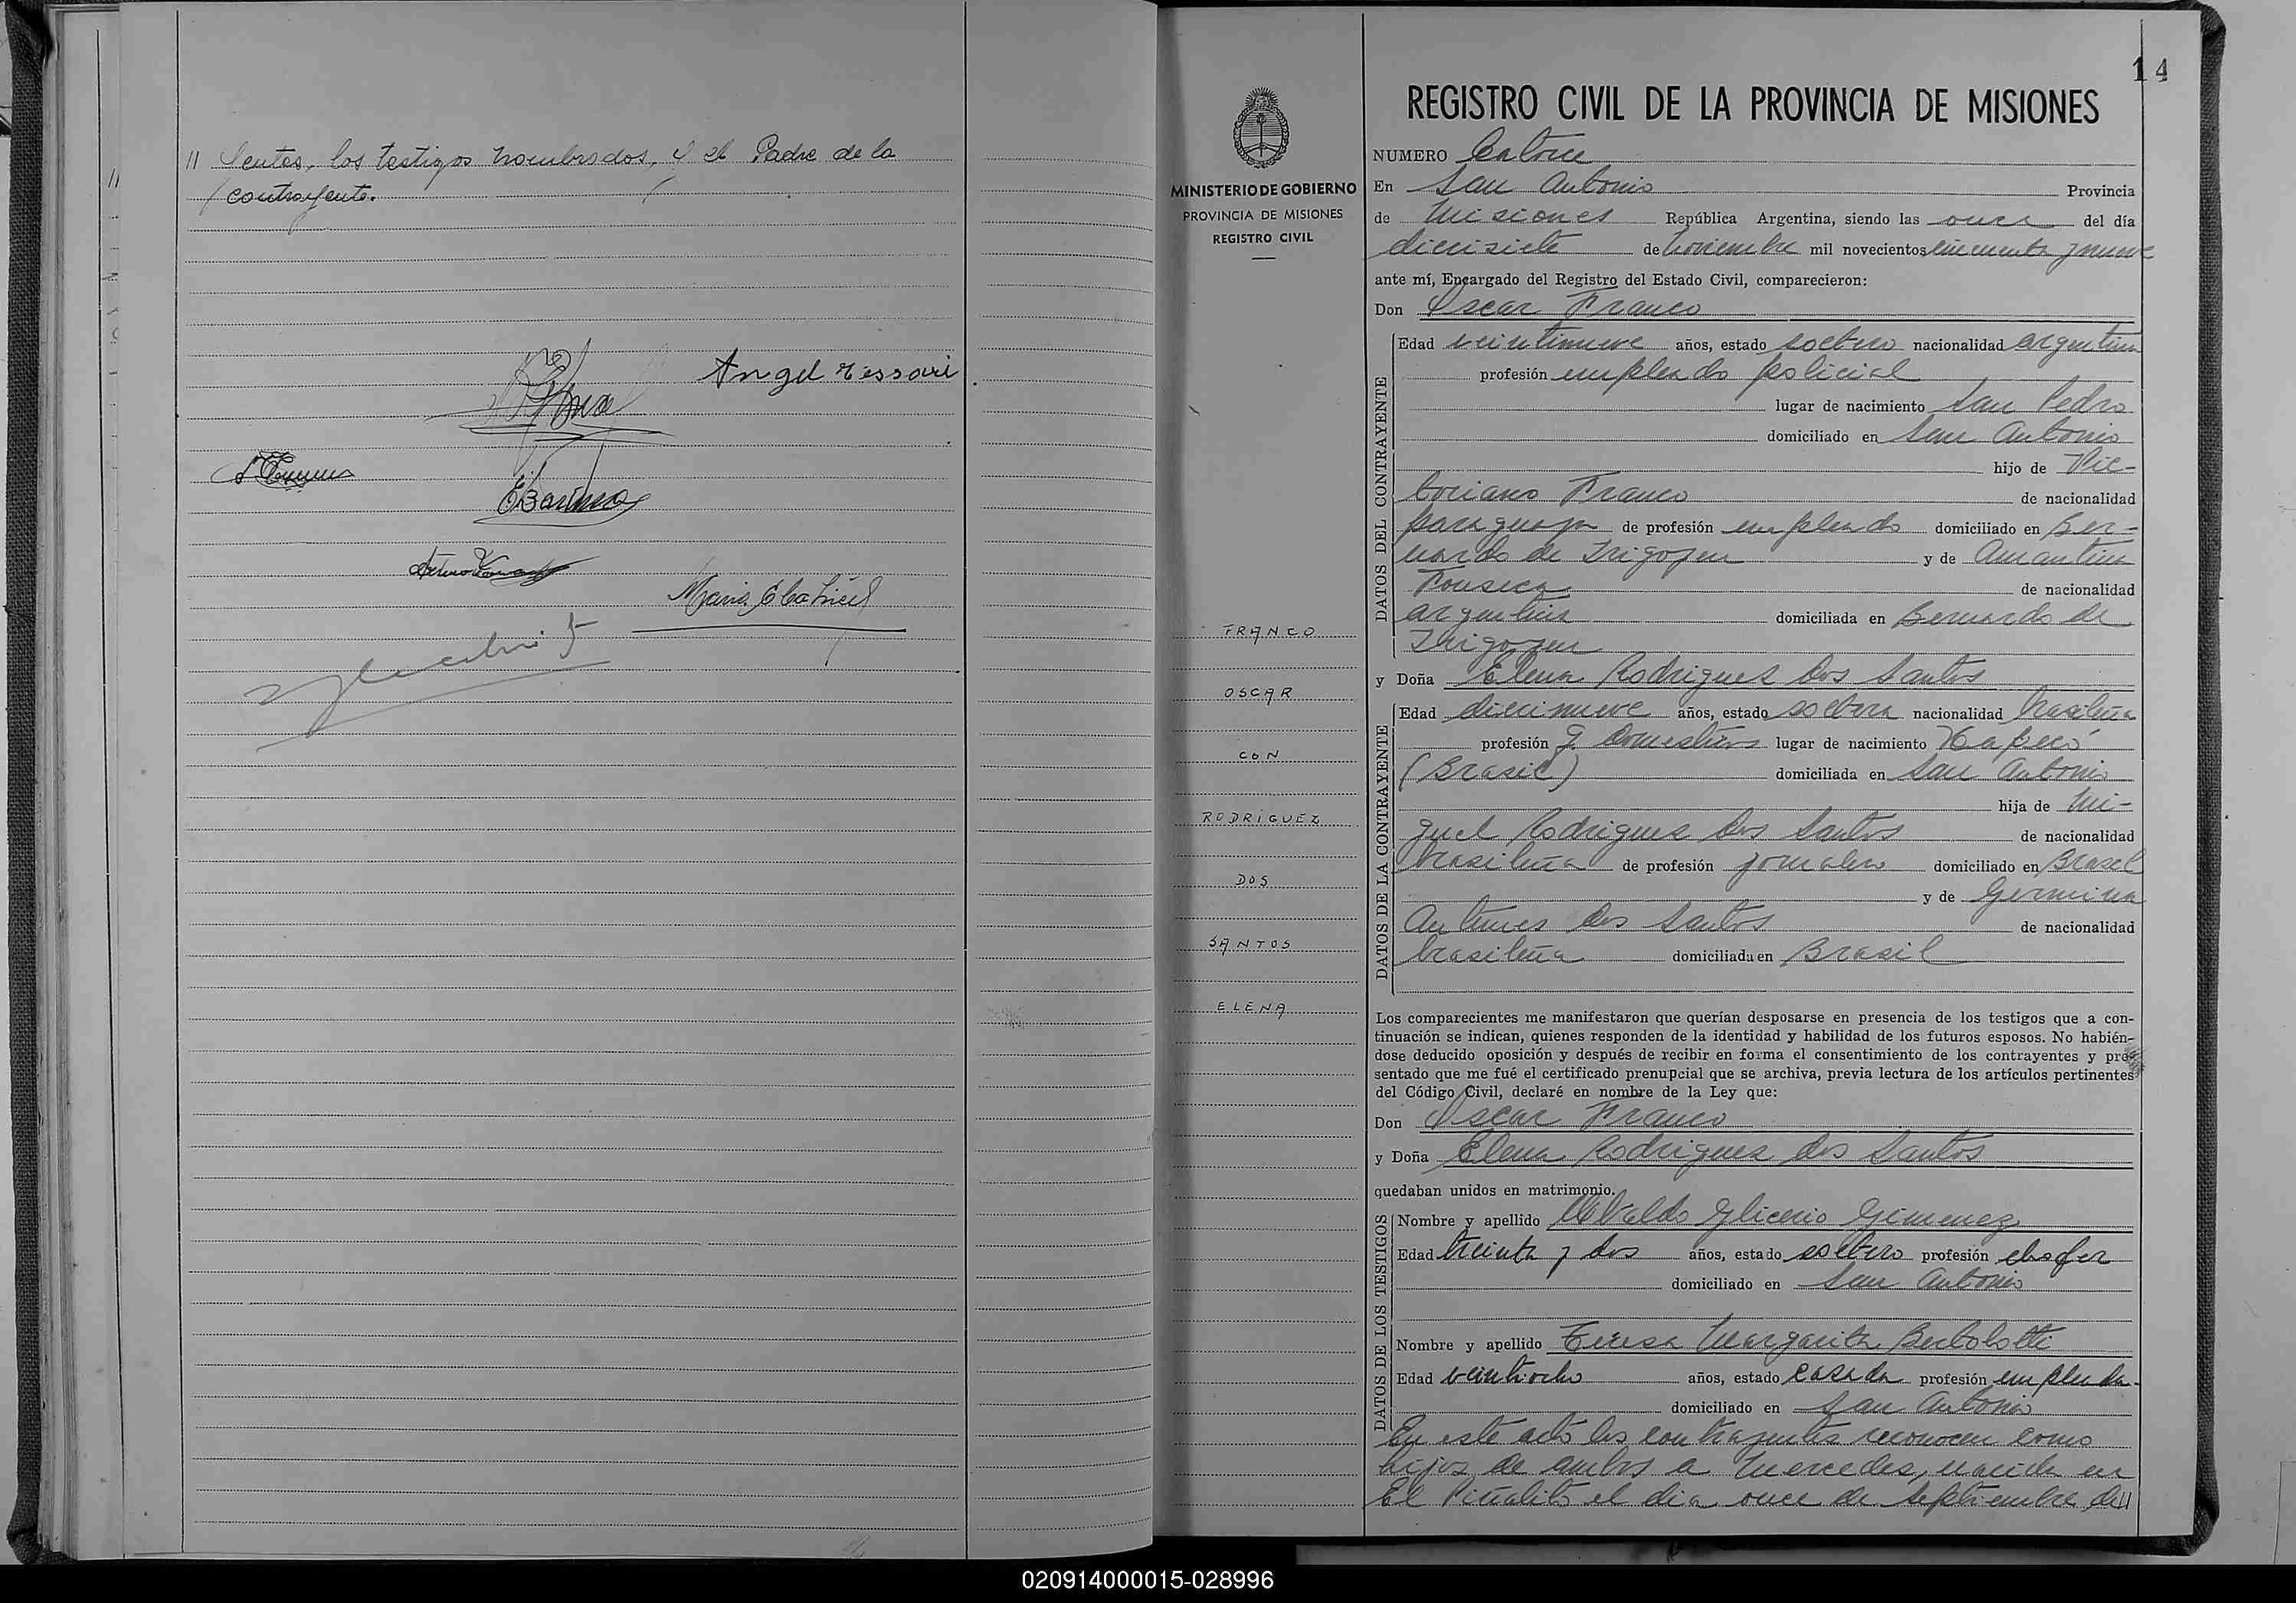 // sentes, los testigos nombrados, y el Padre de la
/ contrayente.
Angel Tessari
14
MINISTERIO DE GOBIERNO
PROVINCIA DE MISIONES
REGISTRO CIVIL
FRANCO
OSCAR
CON
RODRIGUEZ
DOS
SANTOS
ELENA
REGISTRO CIVIL DE LA PROVINCIA DE MISIONES
NUMERO Catorce
En San Antonio Provincia
de Misiones República Argentina, siendo las once del día
diecisiete de Noviembre mil novecientos cincuenta y nueve
ante mí, Encargado del Registro del Estado Civil, comparecieron:
Don Oscar Franco
DATOS DEL CONTRAYENTE
Edad veintinueve años, estado soltero nacionalidad argentina
profesión empleado policial
lugar de nacimiento San Pedro
domiciliado en San Antonio
hijo de Vic-
toriano Franco de nacionalidad
paraguaya de profesión empleado domiciliado en Ber-
nardo de Irigoyen y de Amantina
Fonseca de nacionalidad
argentina domiciliada en Bernardo de
Irigoyen
y Doña Elena Rodriguez dos Santos
DATOS DE LA CONTRAYENTE
Edad diecinueve años, estado soltera nacionalidad brasileña
profesión q. domesticos lugar de nacimiento Xapecó
(Brasil) domiciliada en San Antonio
hija de Mi-
guel Rodriguez dos Santos de nacionalidad
brasileña de profesión jornalero domiciliado en Brasil
y de Germina
Antunes dos Santos de nacionalidad
brasileña domiciliada en Brasil
Los comparecientes me manifestaron que querían desposarse en presencia de los testigos que a con-
tinuación se indican, quienes responden de la identidad y habilidad de los futuros esposos. No habién-
dose deducido oposición y después de recibir en forma el consentimiento de los contrayentes y pre-
sentado que me fué el certificado prenupcial que se archiva, previa lectura de los artículos pertinentes
del Código Civil, declaré en nombre de la Ley que:
Don Oscar Franco
y Doña Elena Rodriguez dos Santos
quedaban unidos en matrimonio.
DATOS DE LOS TESTIGOS
Nombre y apellido Ubaldo Glicerio Gimenez
Edad treinta y dos años, estado soltero profesión chofer
domiciliado en San Antonio
Nombre y apellido Teresa Margarita Bertolotti
Edad veintiocho años, estado casada profesión empleada
domiciliado en San Antonio
En este acto los contrayentes reconocen como
hijos de ambos a Mercedes, nacida en
El Piñalito el dia once de septiembre de//
020914000015-028996